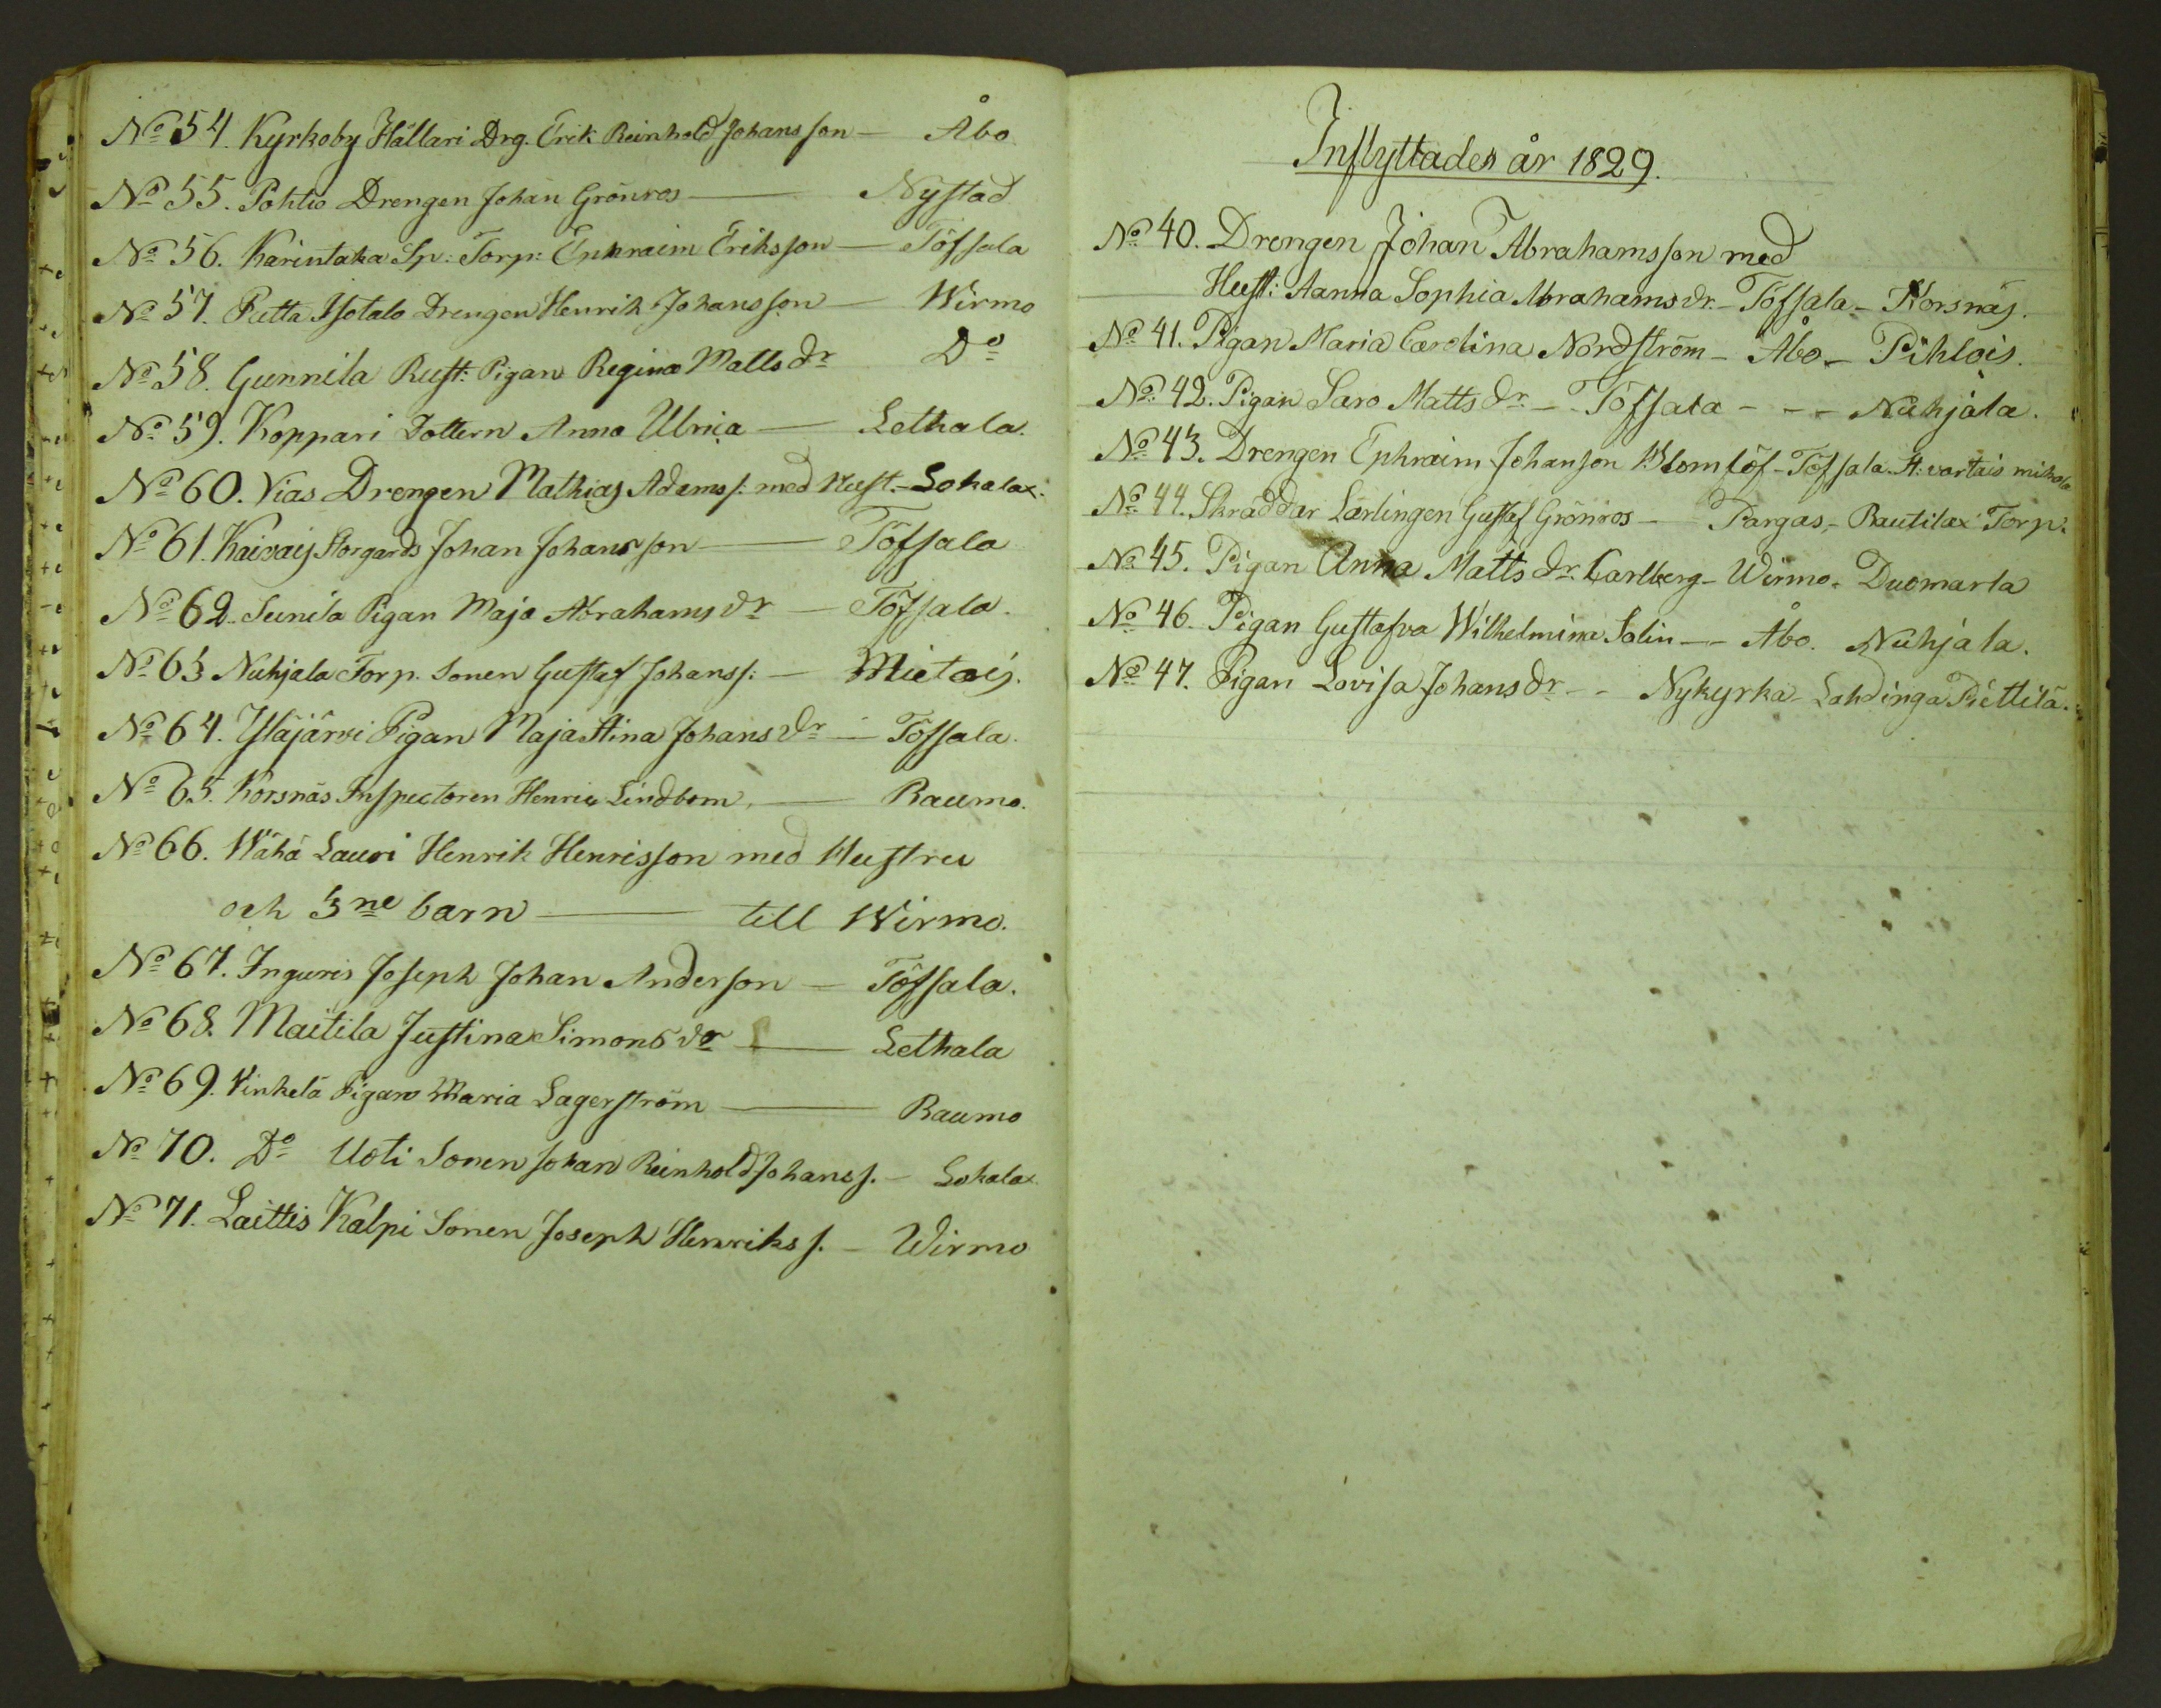 No 54. Kyrkoby Hällari Drg. Erik Reinhold Johansson — Åbo
No 55. Pohtio Drengen Johan Grönros — Nystad
No 56. Karintaka Sp: Torp: Ephraim Eriksson — Töfsala
No 57. Putta Isotalo Drengen Henrik Johansson — Wirmo
No 58. Gunnila Rust. Pigan Regina Matts dr Do
No 59. Koppari Dottern Anna Ulrica — Lethala.
No 60. Vias Drengen Mathias Adams s: med Hust. - Lokalax.
No 61. Kaivais Storgards Johan Johansson — Töfsala
No 62. Sunila Pigan Maja Abrahams dr — Töfsala.
No 63 Nuhjala Torp. Sonen Gustaf Johans s: — Mietois.
No 64. Yläjärvi Pigan Maja Stina Johans dr — Töfsala.
No 65. Korsnäs Inspectoren Henric Lindbom, — Raumo.
No 66. Wähä Lauri Henrik Henrisson med Hustru
och 3ne barn — till Wirmo.
No 67. Inguris Joseph Johan Anderson — Töfsala.
No 68. Maitila Justina Simons dr — Lethala
No 69. Vinkelä Pigan Maria Lagerström — Raumo
No 70. Do Uoti Sonen Johan Reinhold Johans s. — Lokalax
No 71. Laittis Kalpi Sonen Joseph Henriks s. — Wirmo
Inflyttades år 1829.
No 40. Drengen Johan Abrahamsson med
Hust: Aanna Sophia Abrahams dr. - Töfsala - Korsnäs.
No 41. Pigan Maria Carolina Nordström - Åbo - Pihlois.
No 42. Pigan Saro Matts dr. - Töfsala - - - Nuhjala.
No 43. Drengen Ephraim Johanson Blomlöf - Töfsala. St: vartais mikola
No 44. Skräddar Lärlingen Gustaf Grönros - Pargas, - Rautilax Torp.
No 45. Pigan Anna Matts dr. Carlberg - Wirmo - Duomarla
No 46. Pigan Gustafva Wilhelmina Salin — Åbo. Nuhjala.
No 47. Pigan Lovisa Johans dr - - Nykyrka - Lahdinga Piettilä.